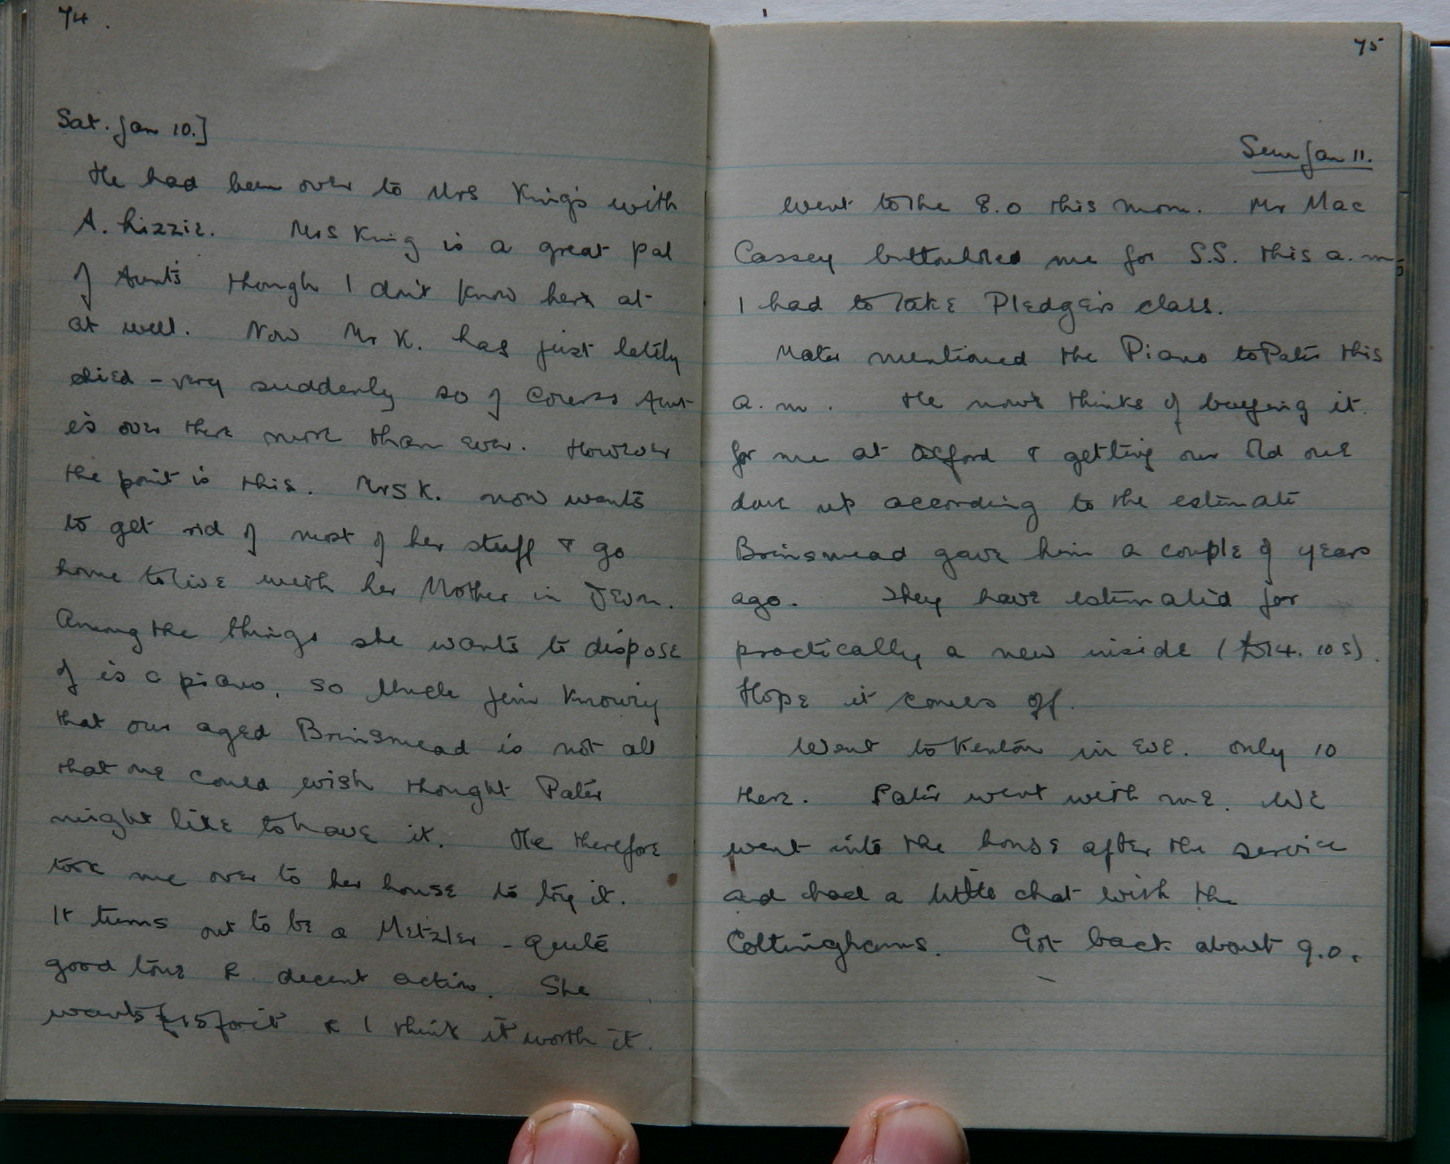 74.
Sat. Jan 10.]
He had been over to Mrs King's with
A. Lizzie. Mrs King is a great pal
of Aunt's though I don't know her at
at well. Now Mr K. has just lately
died - very suddenly so of course Aunt
is over there more than ever. However
the point is this. Mrs K. now wants
to get rid of most of her stuff & go
home to live with her Mother in Devon.
Among the things she wants to dispose
of is a piano, so Uncle Jim knowing
that our aged Brinsmead is not all
that one could wish thought Pater
might like to have it. He therefore
took me over to her house to try it.
It turns out to be a Metzler - quite
good tone & decent action. She
wants £15 for it & I think it worth it.
75
Sun Jan 11.
Went to the 8.0 this morn. Mr Mac
Cassey buttonholed me for S.S. this a.m.
I had to take Pledger's class.
Mater mentioned the Piano to Pater this
a.m. He now thinks of buying it
for me at Oxford & getting our old one
done up according to the estimate
Brinsmead gave him a couple of years
ago. They have estimated for
practically a new inside (£14. 10s).
Hope it comes off.
Went to Kenton in eve. only 10
there. Pater went with me. We
went into the house after the service
and had a little chat with the
Cottinghams. Got back about 9.0.